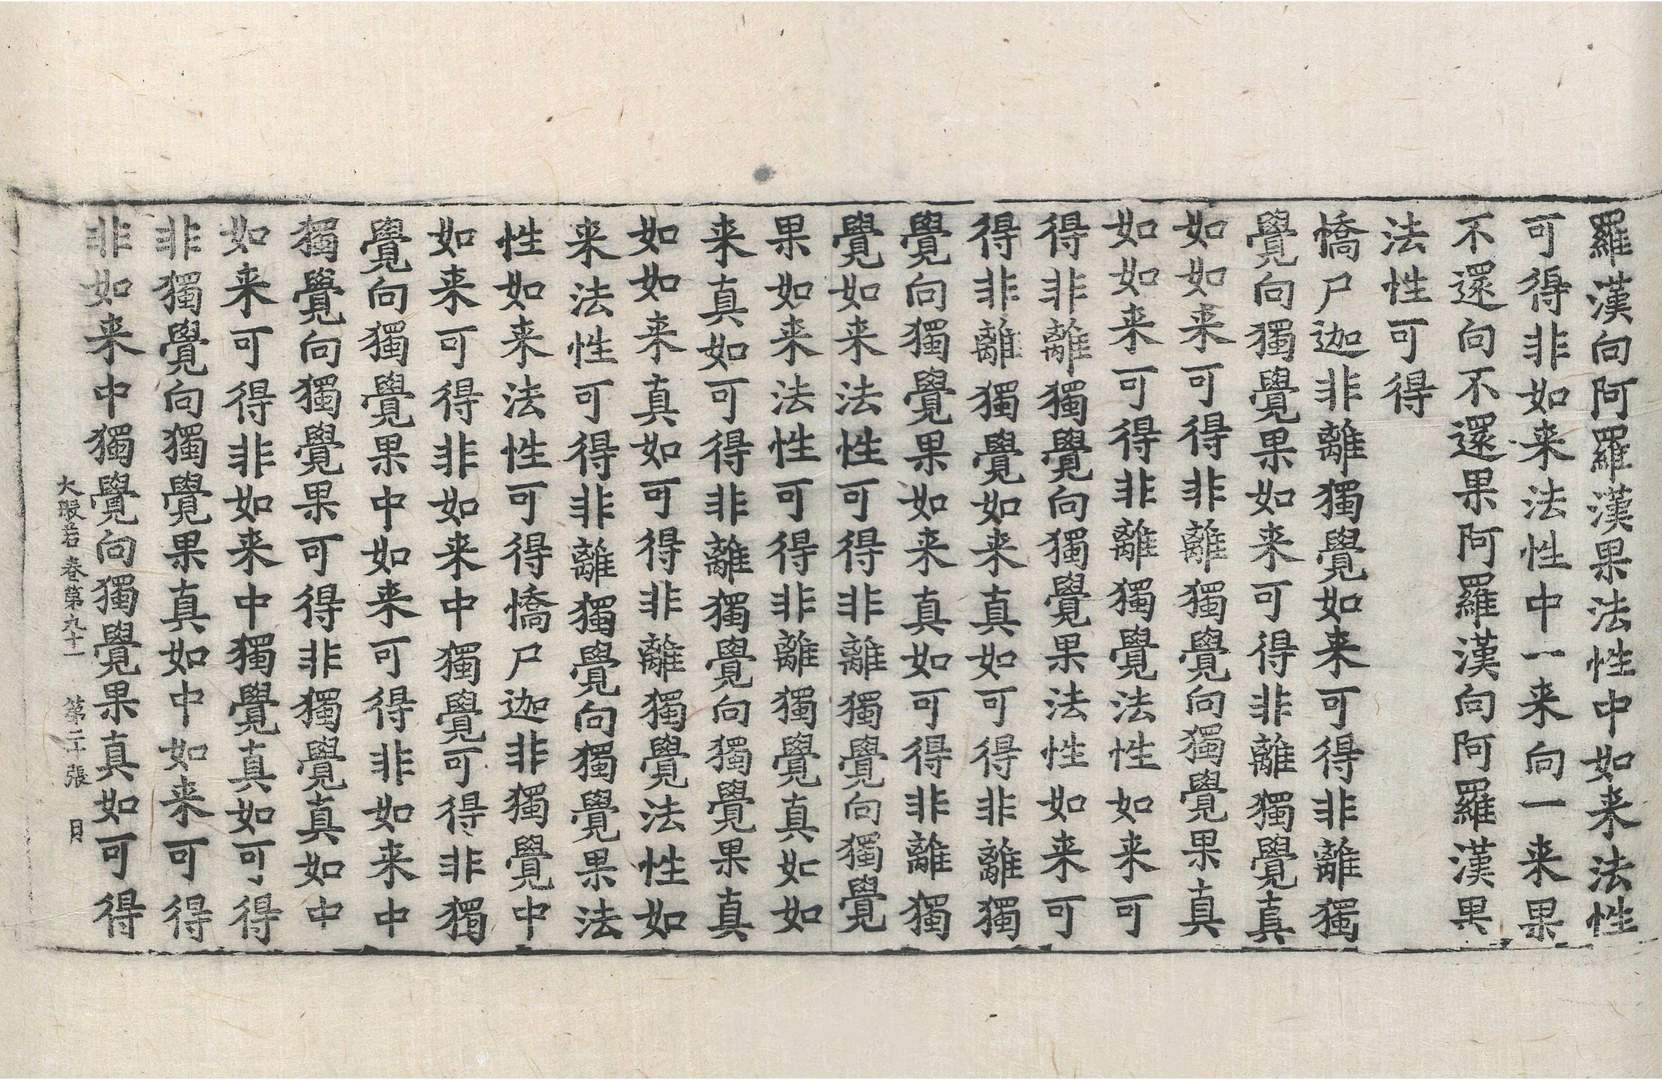 羅漢向阿羅漢果法性中如来法性
可得非如来法性中一来向一来果
不還向不還果阿羅漢向阿羅漢果
法性可得
憍尸迦非離獨覺如来可得非離獨
覺向獨覺果如来可得非離獨覺真
如如来可得非離獨覺向獨覺果真
如如来可得非離獨覺法性如来可
得非離獨覺向獨覺果法性如来可
得非離獨覺如来真如可得非離獨
覺向獨覺果如来真如可得非離獨
覺如来法性可得非離獨覺向獨覺
果如来法性可得非離獨覺真如如
来真如可得非離獨覺向獨覺果真
如如来真如可得非離獨覺法性如
来法性可得非離獨覺向獨覺果法
性如来法性可得憍尸迦非獨覺中
如来可得非如来中獨覺可得非獨
覺向獨覺果中如来可得非如来中
獨覺向獨覺果可得非獨覺真如中
如来可得非如来中獨覺真如可得
非獨覺向獨覺果真如中如来可得
非如来中獨覺向獨覺果真如可得
大般若卷第九十一 第二十張 日